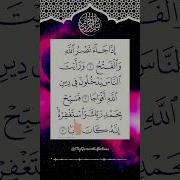 إِذَا جَاءَ نَصْرُ اللَّهِ
وَالْفَتْحُ ١ وَرَأَيْتَ
النَّاسَ يَدْخُلُونَ فِي دِينِ
اللَّهِ أَفْوَاجًا ٢ فَسَبِّحْ
بِحَمْدِ رَبِّكَ وَاسْتَغْفِرْهُ
إِنَّهُ كَانَ تَوَّابًا ٣